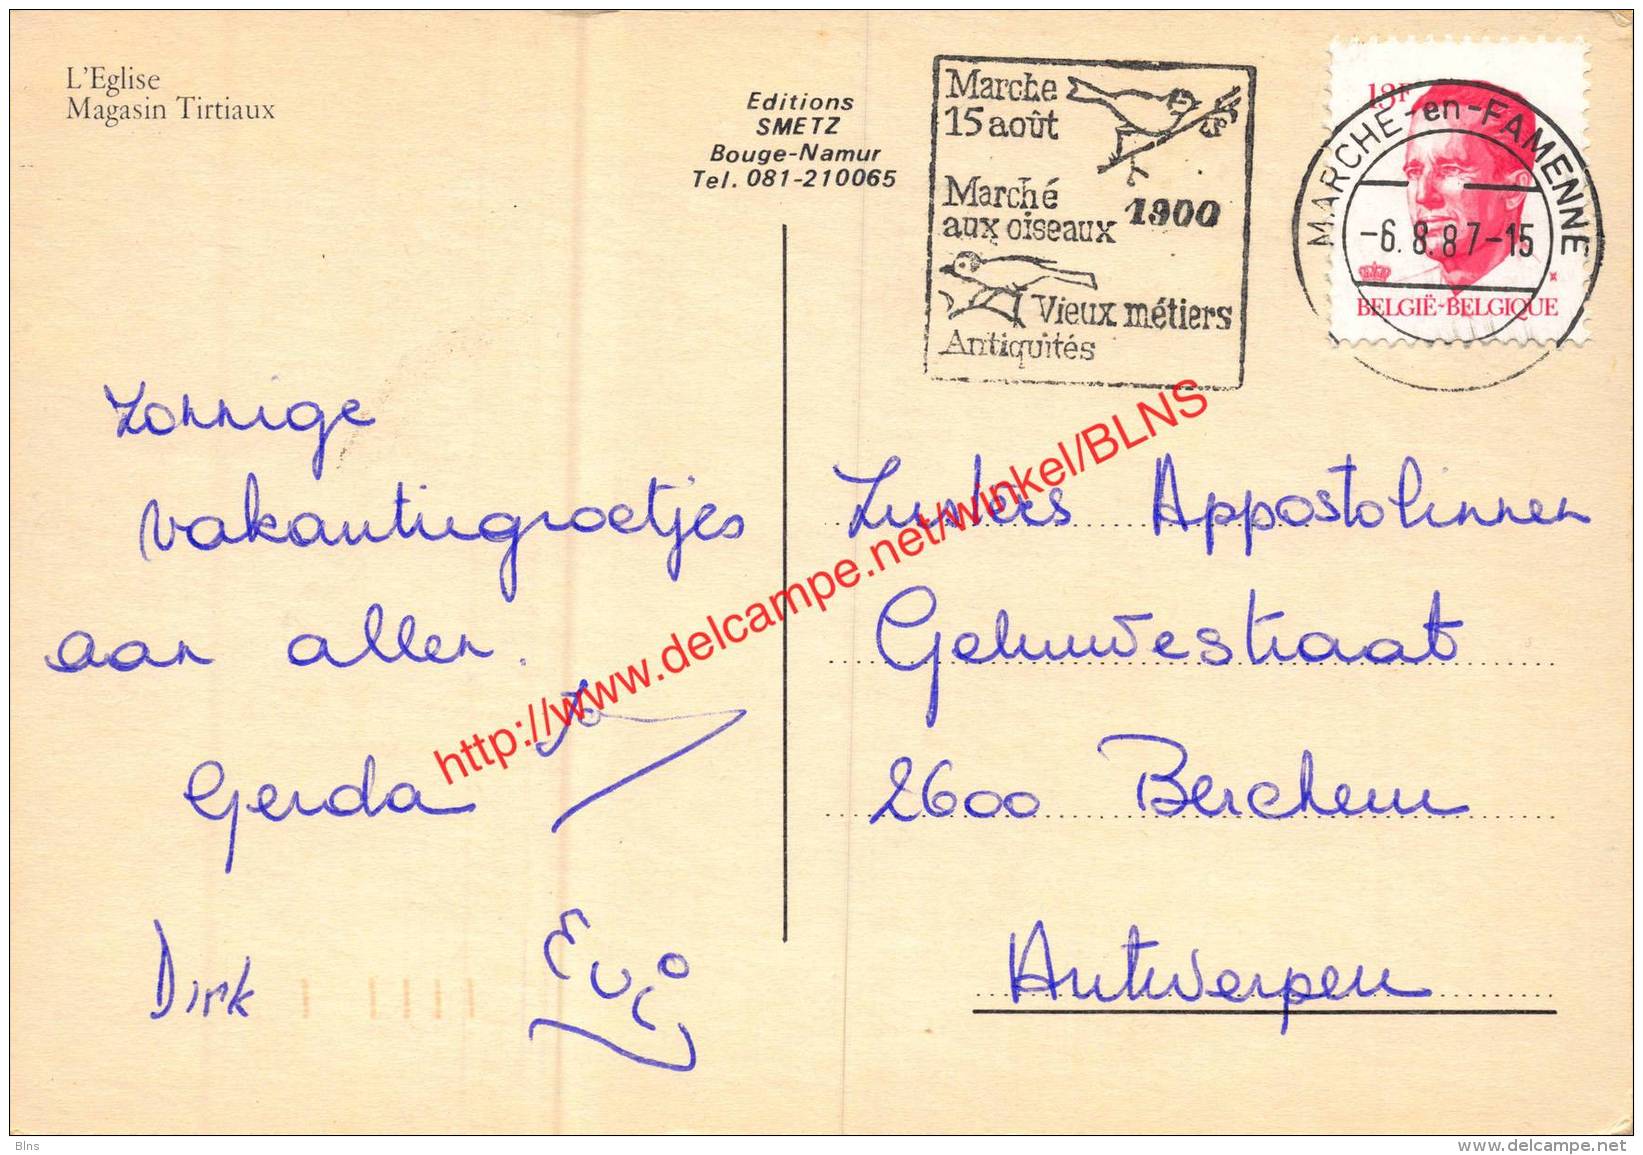 L'Eglise
Magasin Tirtiaux
Editions
SMETZ
Bouge-Namur
Tel. 081-210065
Marche
15 août
Marché
aux oiseaux
1900
Vieux métiers
Antiquités
13F
BELGIË-BELGIQUE
MARCHE-en-FAMENNE
-6. 8. 87-15
Zonnige
vakantiegroetjes
aan allen.
Gerda
Dirk
Evi
Zusters Appostolinnen
Geluwestraat
2600 Berchem
Antwerpen
http://www.delcampe.net/winkel/BLNS
Blns
www.delcampe.net